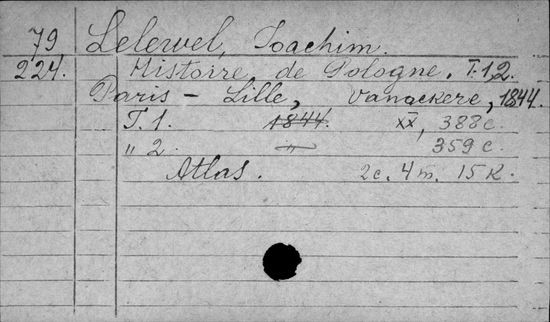 79 Lelewel, Joachim.
224. Histoire de Pologne. T.1,2.
Paris – Lille, Vanackere, 1844.
T.1. 1844. XX, 388 c.
„ 2. „ 359 c.
Atlas. 2 c. 4 m. 15 K.